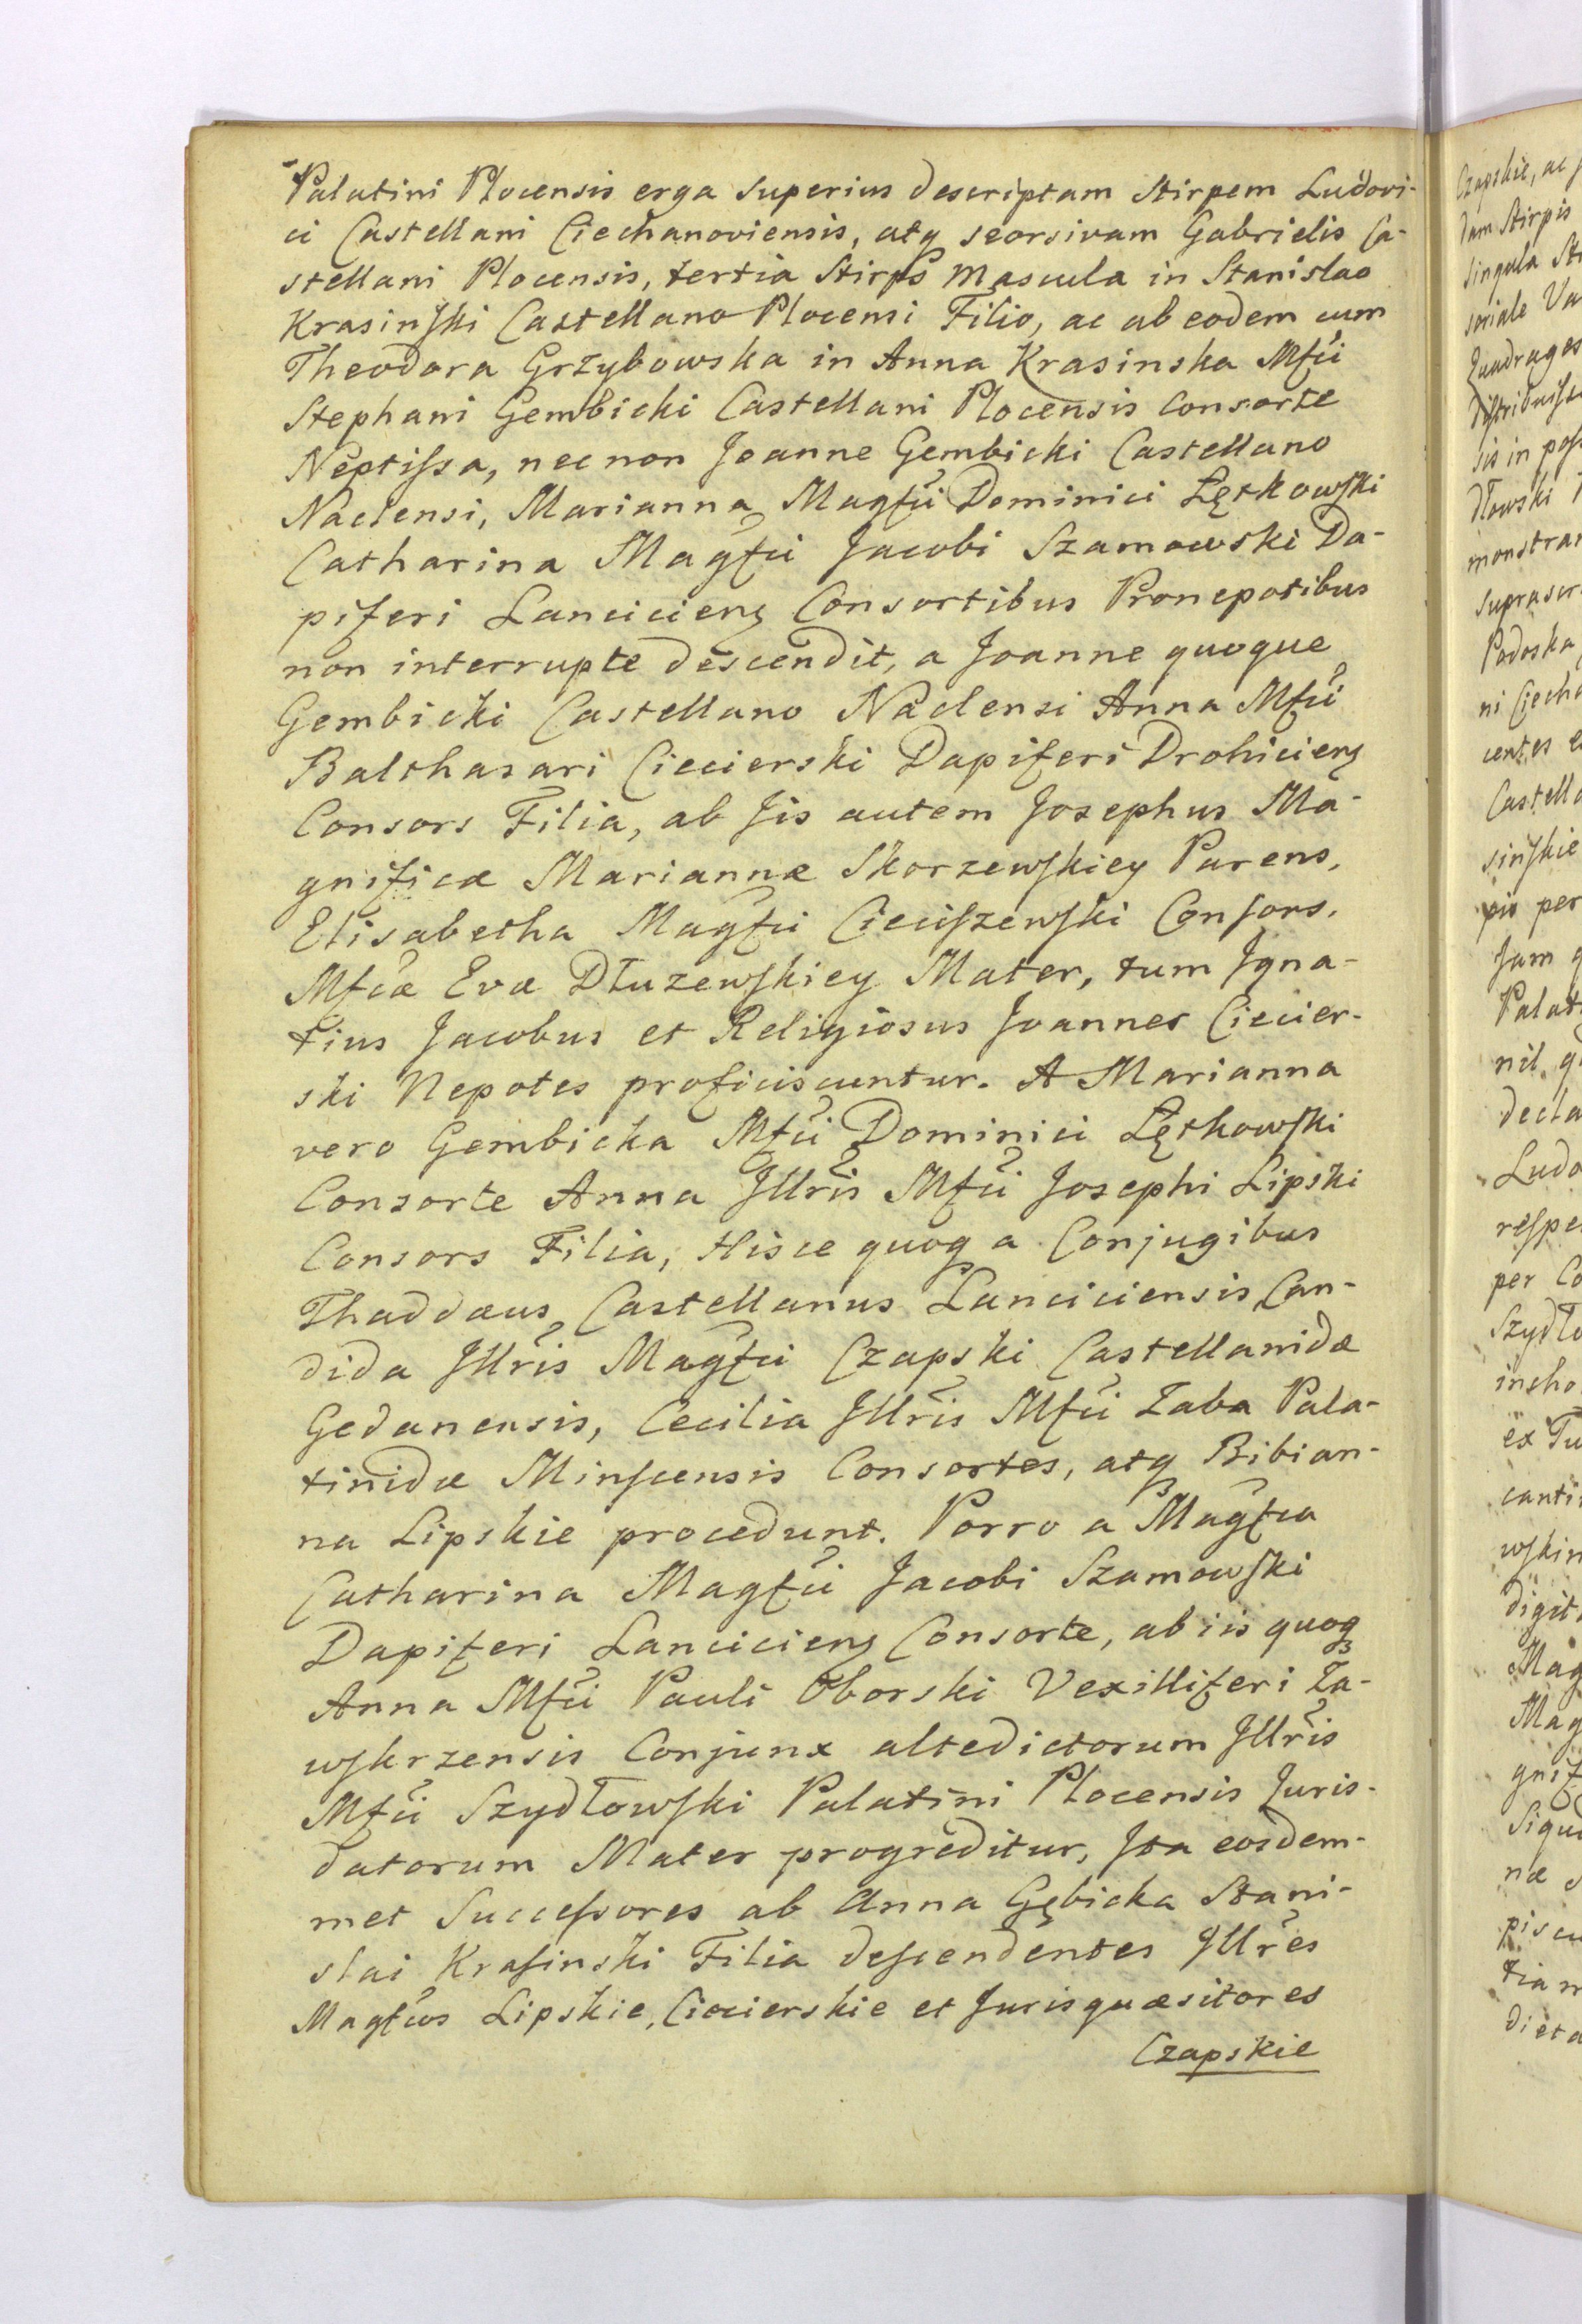 Palatini Plocensis erga Superius descriptam Stirpem Ludovi-
ci Castellani Ciechanoviensis, atq seorsivam Gabrielis Ca-
stellani Plocensis, tertia Stirps Mascula in Stanislao
Krasinſki Castellano Plocensi Filio, ac ab eodem cum
Theodora Grzybowska in Anna Krasinska Mfci
Stephani Gembicki Castellani Plocensis Consorte
Neptiſsa, necnon Joanne Gembicki Castellano
Naclensi, Marianna Magfci Dominici Łętkowſki
Catharina Magfci Jacobi Szamowski Da-
piferi Lanciciens Consortibus Pronepotibus
non interrupte descendit, a Joanne quoque
Gembicki Castellano Naclensi Anna Mfci
Balthasari Ciecierski Dapiferi Drohiciens
Consors Filia, ab Jis autem Josephus Ma-
gnificæ Mariannæ Skorzewſkiey Parens,
Elisabetha Magfci Cieciſzewſki Conſors,
Mfcæ Evæ Dłuzewſkiey Mater, tum Igna-
tius Jacobus et Religiosus Joannes Ciecier-
ski Nepotes proficiscuntur. A Marianna
vero Gembicka Mfci Dominici Łętkowſki
Consorte Anna Jllris Mfci Josephi Lipski
Consors Filia, Hisce quoq a Conjugibus
Thaddæus Castellanus Lanciciensis, Can-
dida Jllris Magfci Czapski Castellanidæ
Gedanensis, Cecilia Jllris Mfci Zaba Pala-
tinidæ Minſcensis Consortes, atq Bibian-
na Lipskie procedunt. Porro a Magfca
Catharina Magfci Jacobi Szamowſki
Dapiferi Lanciciens Consorte, ab iis quoq
Anna Mfci Pauli Oborski Vexilliferi Za-
wſkrzensis Conjunx altedictorum Jllris
Mfci Szydłowſki Palatini Plocensis Juris-
datorum Mater progreditur, Jta eosdem-
met Succeſsores ab Anna Gębicka Stani-
slai Kraſinski Filia deſcendentes Jllres
Magfcos Lipskie, Ciecierskie et Jurisquæsitores
Czapskie
Czapskie, ac
dam Stirpis
Singula
soriale
sis in
dłowski
monstrar
Padoska
ni Ciecha
centes
Castell
sinſkie
pis per
Jam
Palat
nil
decla
Ludo
reſpe
per Co
Szydło
incho
ex Tu
canti
wſkin
digit
Mag
Mag
gnif
Siqui
næ
piscu
tiam
dicta